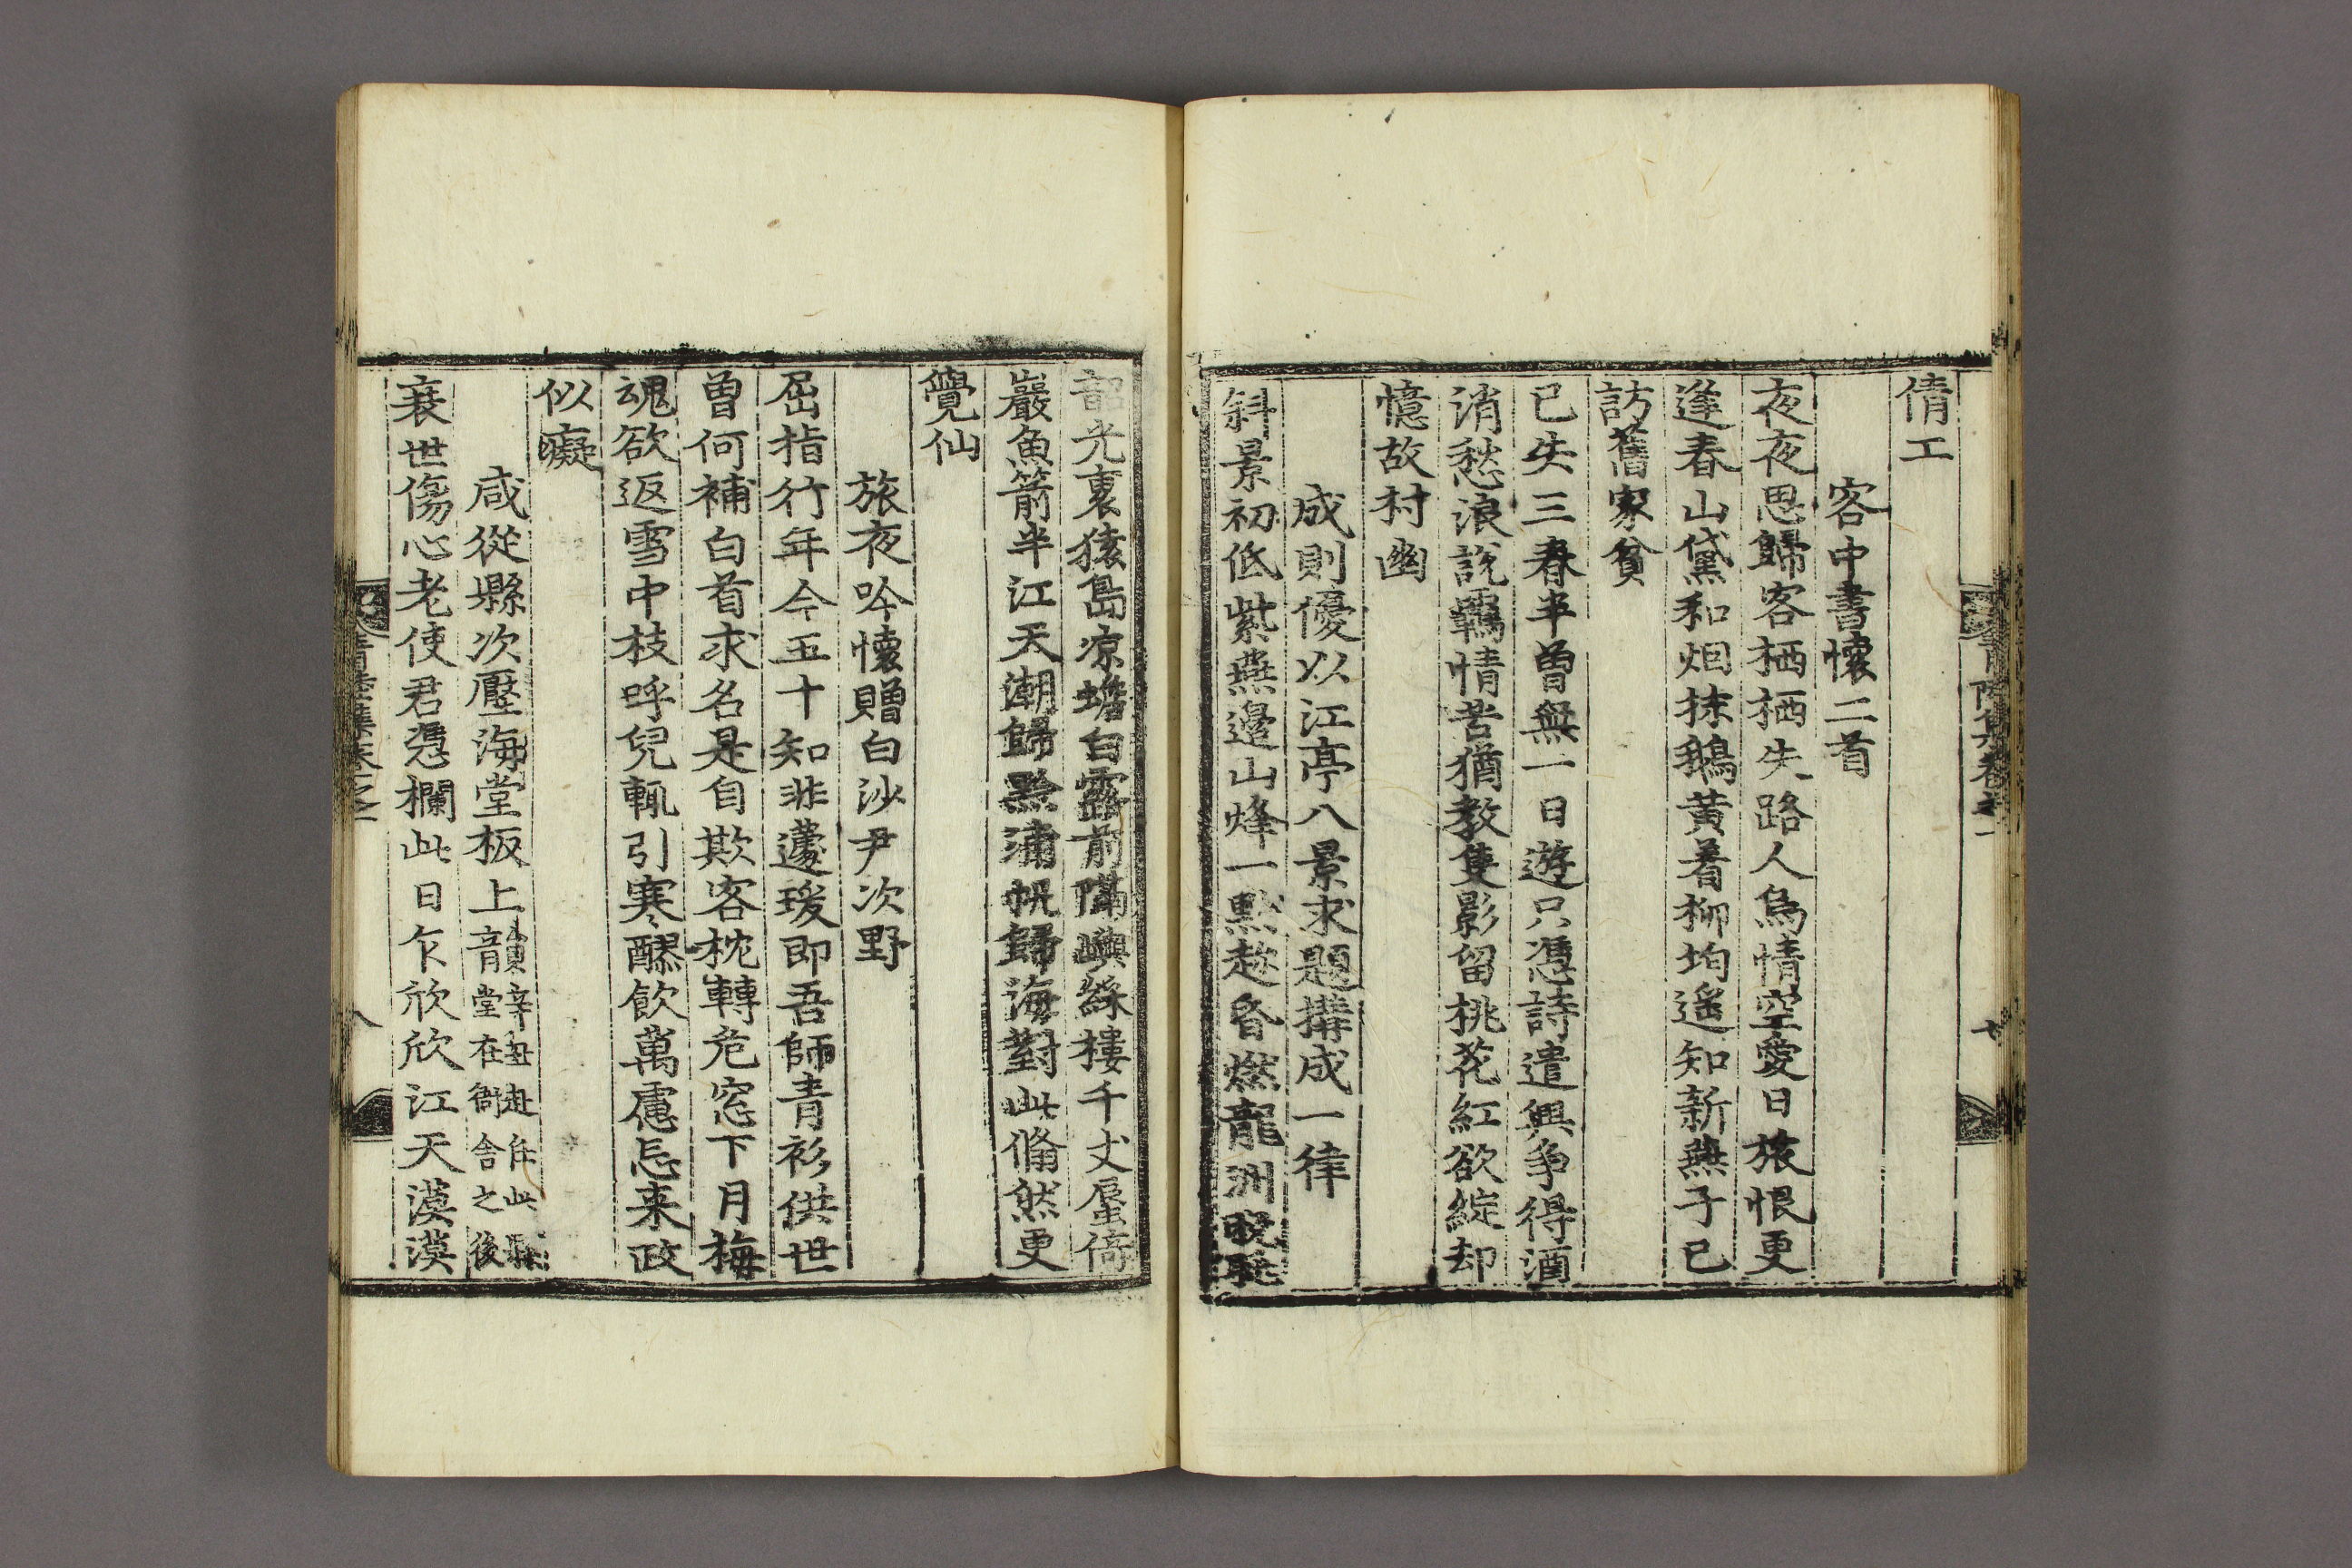 倩工
客中書懷二首
夜夜思歸客栖栖失路人烏情空愛日旅恨更
逢春山黛和烟抹鵝黃着柳均遥知新燕子已
訪舊家貧
已失三春半曾無一日遊只憑詩遣興争得酒
消愁浪說羈情苦猶教隻影留桃花紅欲綻却
憶故村幽
成則優以江亭八景求題搆成一律
斜景初低紫燕邊山烽一點趂昏燃龍洲晚
韶光裏猿島凉蟾白露前嶼絲樓千丈蜃倚
巖魚箭半江天潮歸黔浦帆歸海對此翛然更
覺仙
旅夜吟懷贈白沙尹次野
屈指行年今五十知非蘧瑗即吾師青衫供世
曾何補白首求名是自欺客枕轉危窓下月梅
魂欲返雪中枝呼兒輒引寒醪飮萬慮忘来政
似癡
咸從縣次壓海堂板上韻辛丑赴任此縣堂在衙舍之後
衰世傷心老使君憑欄此日乍欣欣江天漠漠
八